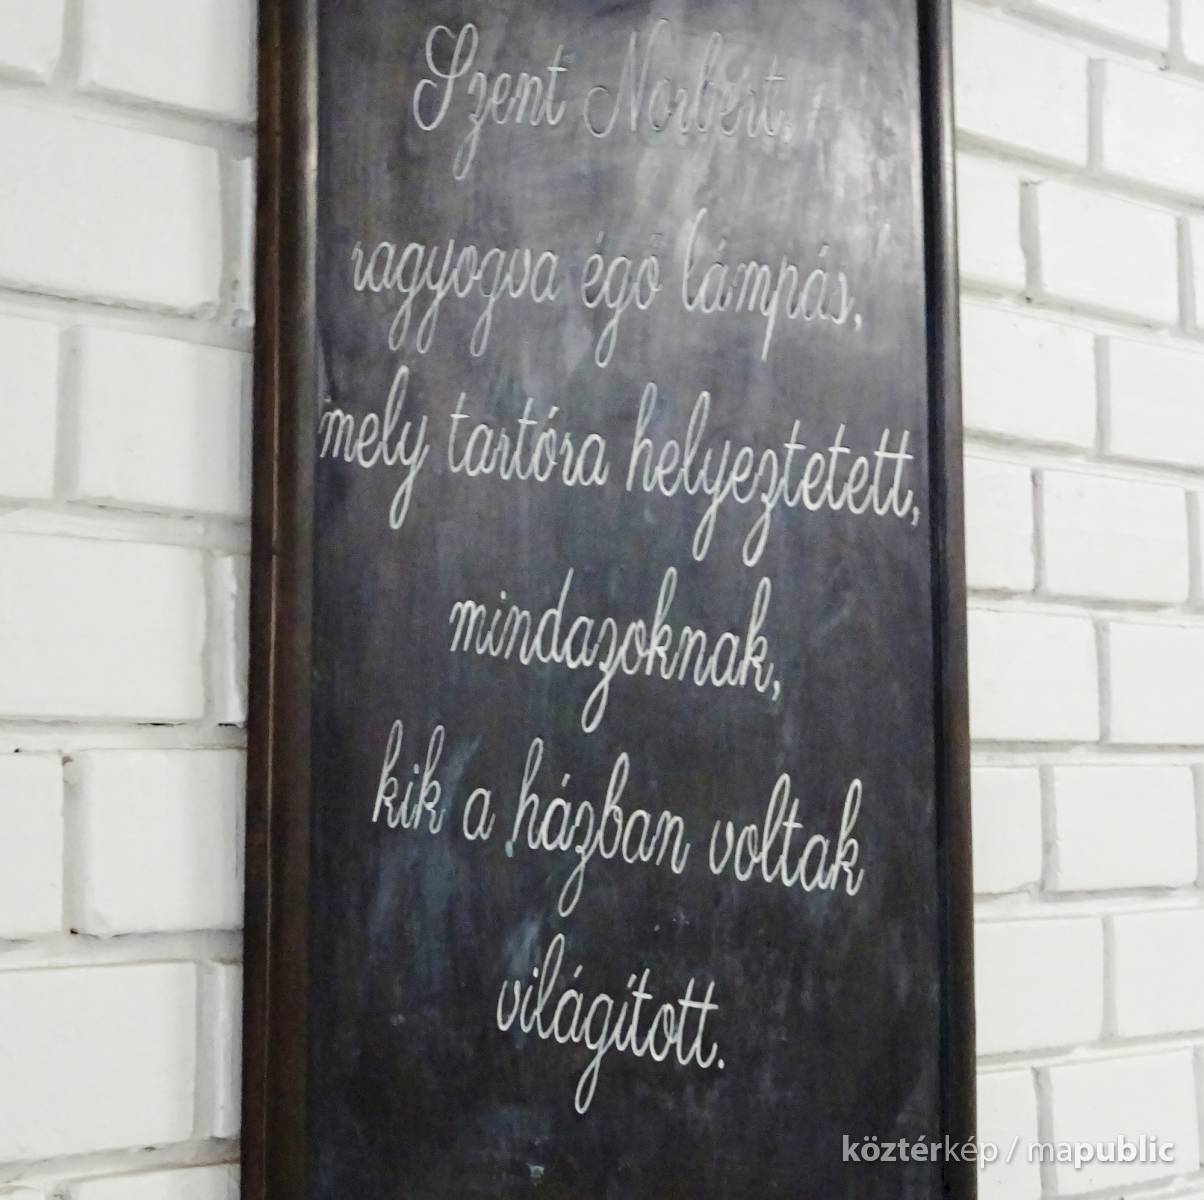 Szent Norbert,
ragyogva égő lámpás,
mely tartóra helyeztetett,
mindazoknak,
kik a házban voltak
világított.
köztérkép / mapublic